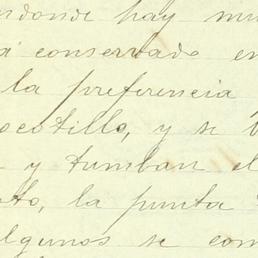 donde hay mu
á conservado en
la preferencia
ocotillo, y se
y tumban el
to, la punta
algunos se com